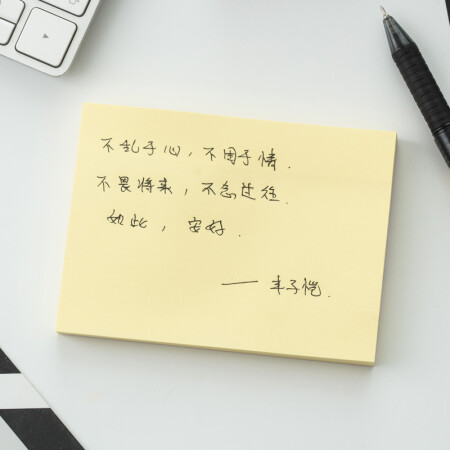 不乱于心，不困于情.
不畏将来，不念过往.
如此，安好.
—— 丰子恺.